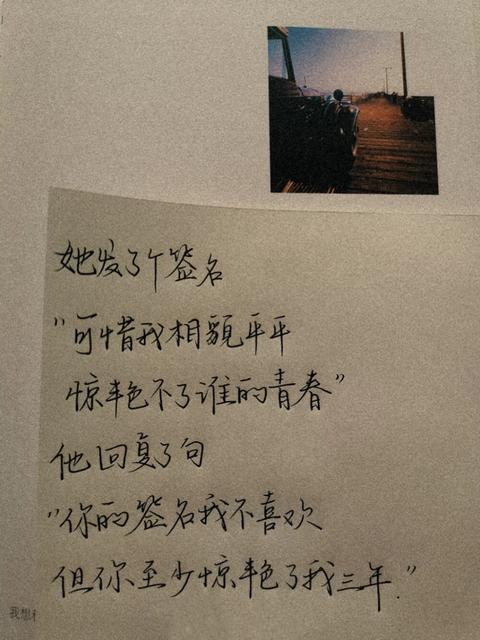 她发了个签名
"可惜我相貌平平
惊艳不了谁的青春"
他回复了句
"你的签名我不喜欢
但你至少惊艳了我三年."
我想